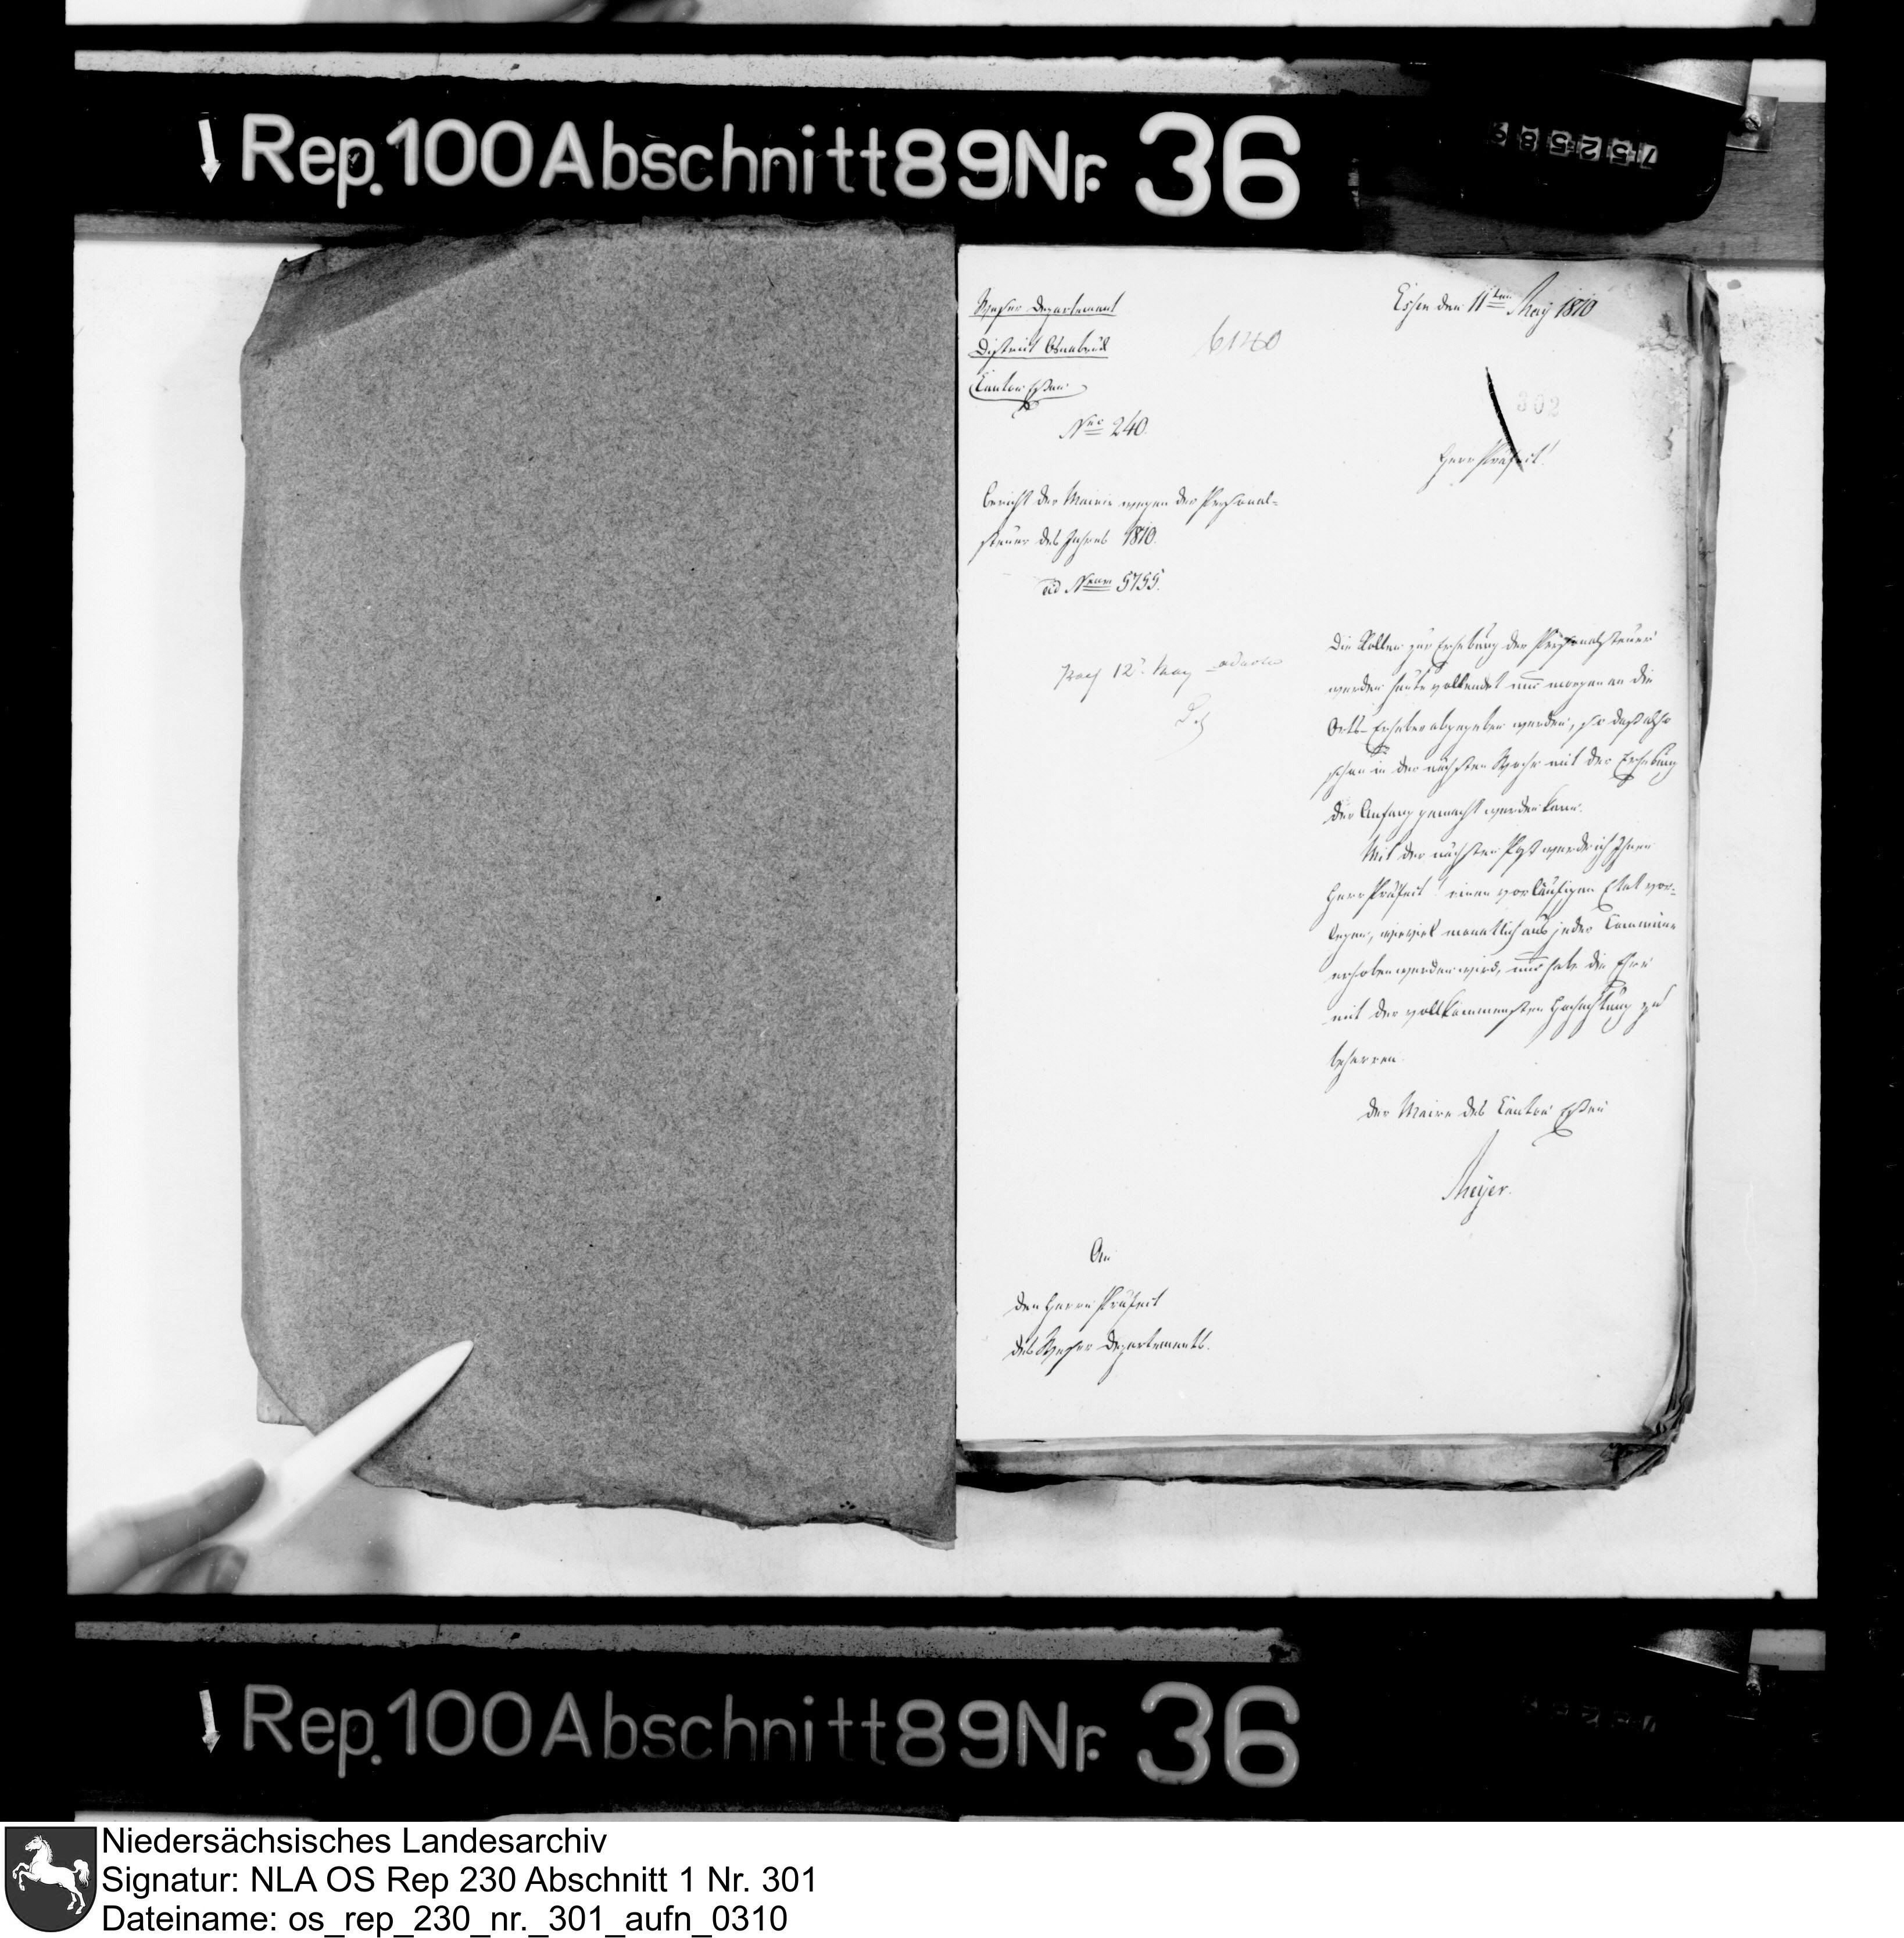 Rep. 100 Abschnitt 89 Nr. 36
752589
Weser Departement
District Osnabrück
Canton Essen
Nro 240.
6140
Essen den 11ten May 1810
302
Herr Präfect!
Bericht des Maires wegen der Personal-
steuer des Jahres 1810.
ad Num 5755.
12 May
Die Rollen zur Erhebung der Personalsteuer
werden heute vollendet und morgen an die
Orts-Erheber abgegeben werden, so daß also
schon in der nächsten Woche mit der Erhebung
der Anfang gemacht werden kann.
Mit der nächsten Post werde ich Ihnen
Herr Präfect! einen vorläufigen Etat vor-
legen, wieviel monatlich aus jeder Commune
erhoben werden wird, und habe die Ehre
mit der vollkommensten Hochachtung zu
beharren
Der Maire des Canton Essen
Meyer.
An
den Herrn Präfect
des Weser Departements.
Rep. 100 Abschnitt 89 Nr. 36
Niedersächsisches Landesarchiv
Signatur: NLA OS Rep 230 Abschnitt 1 Nr. 301
Dateiname: os_rep_230_nr._301_aufn_0310